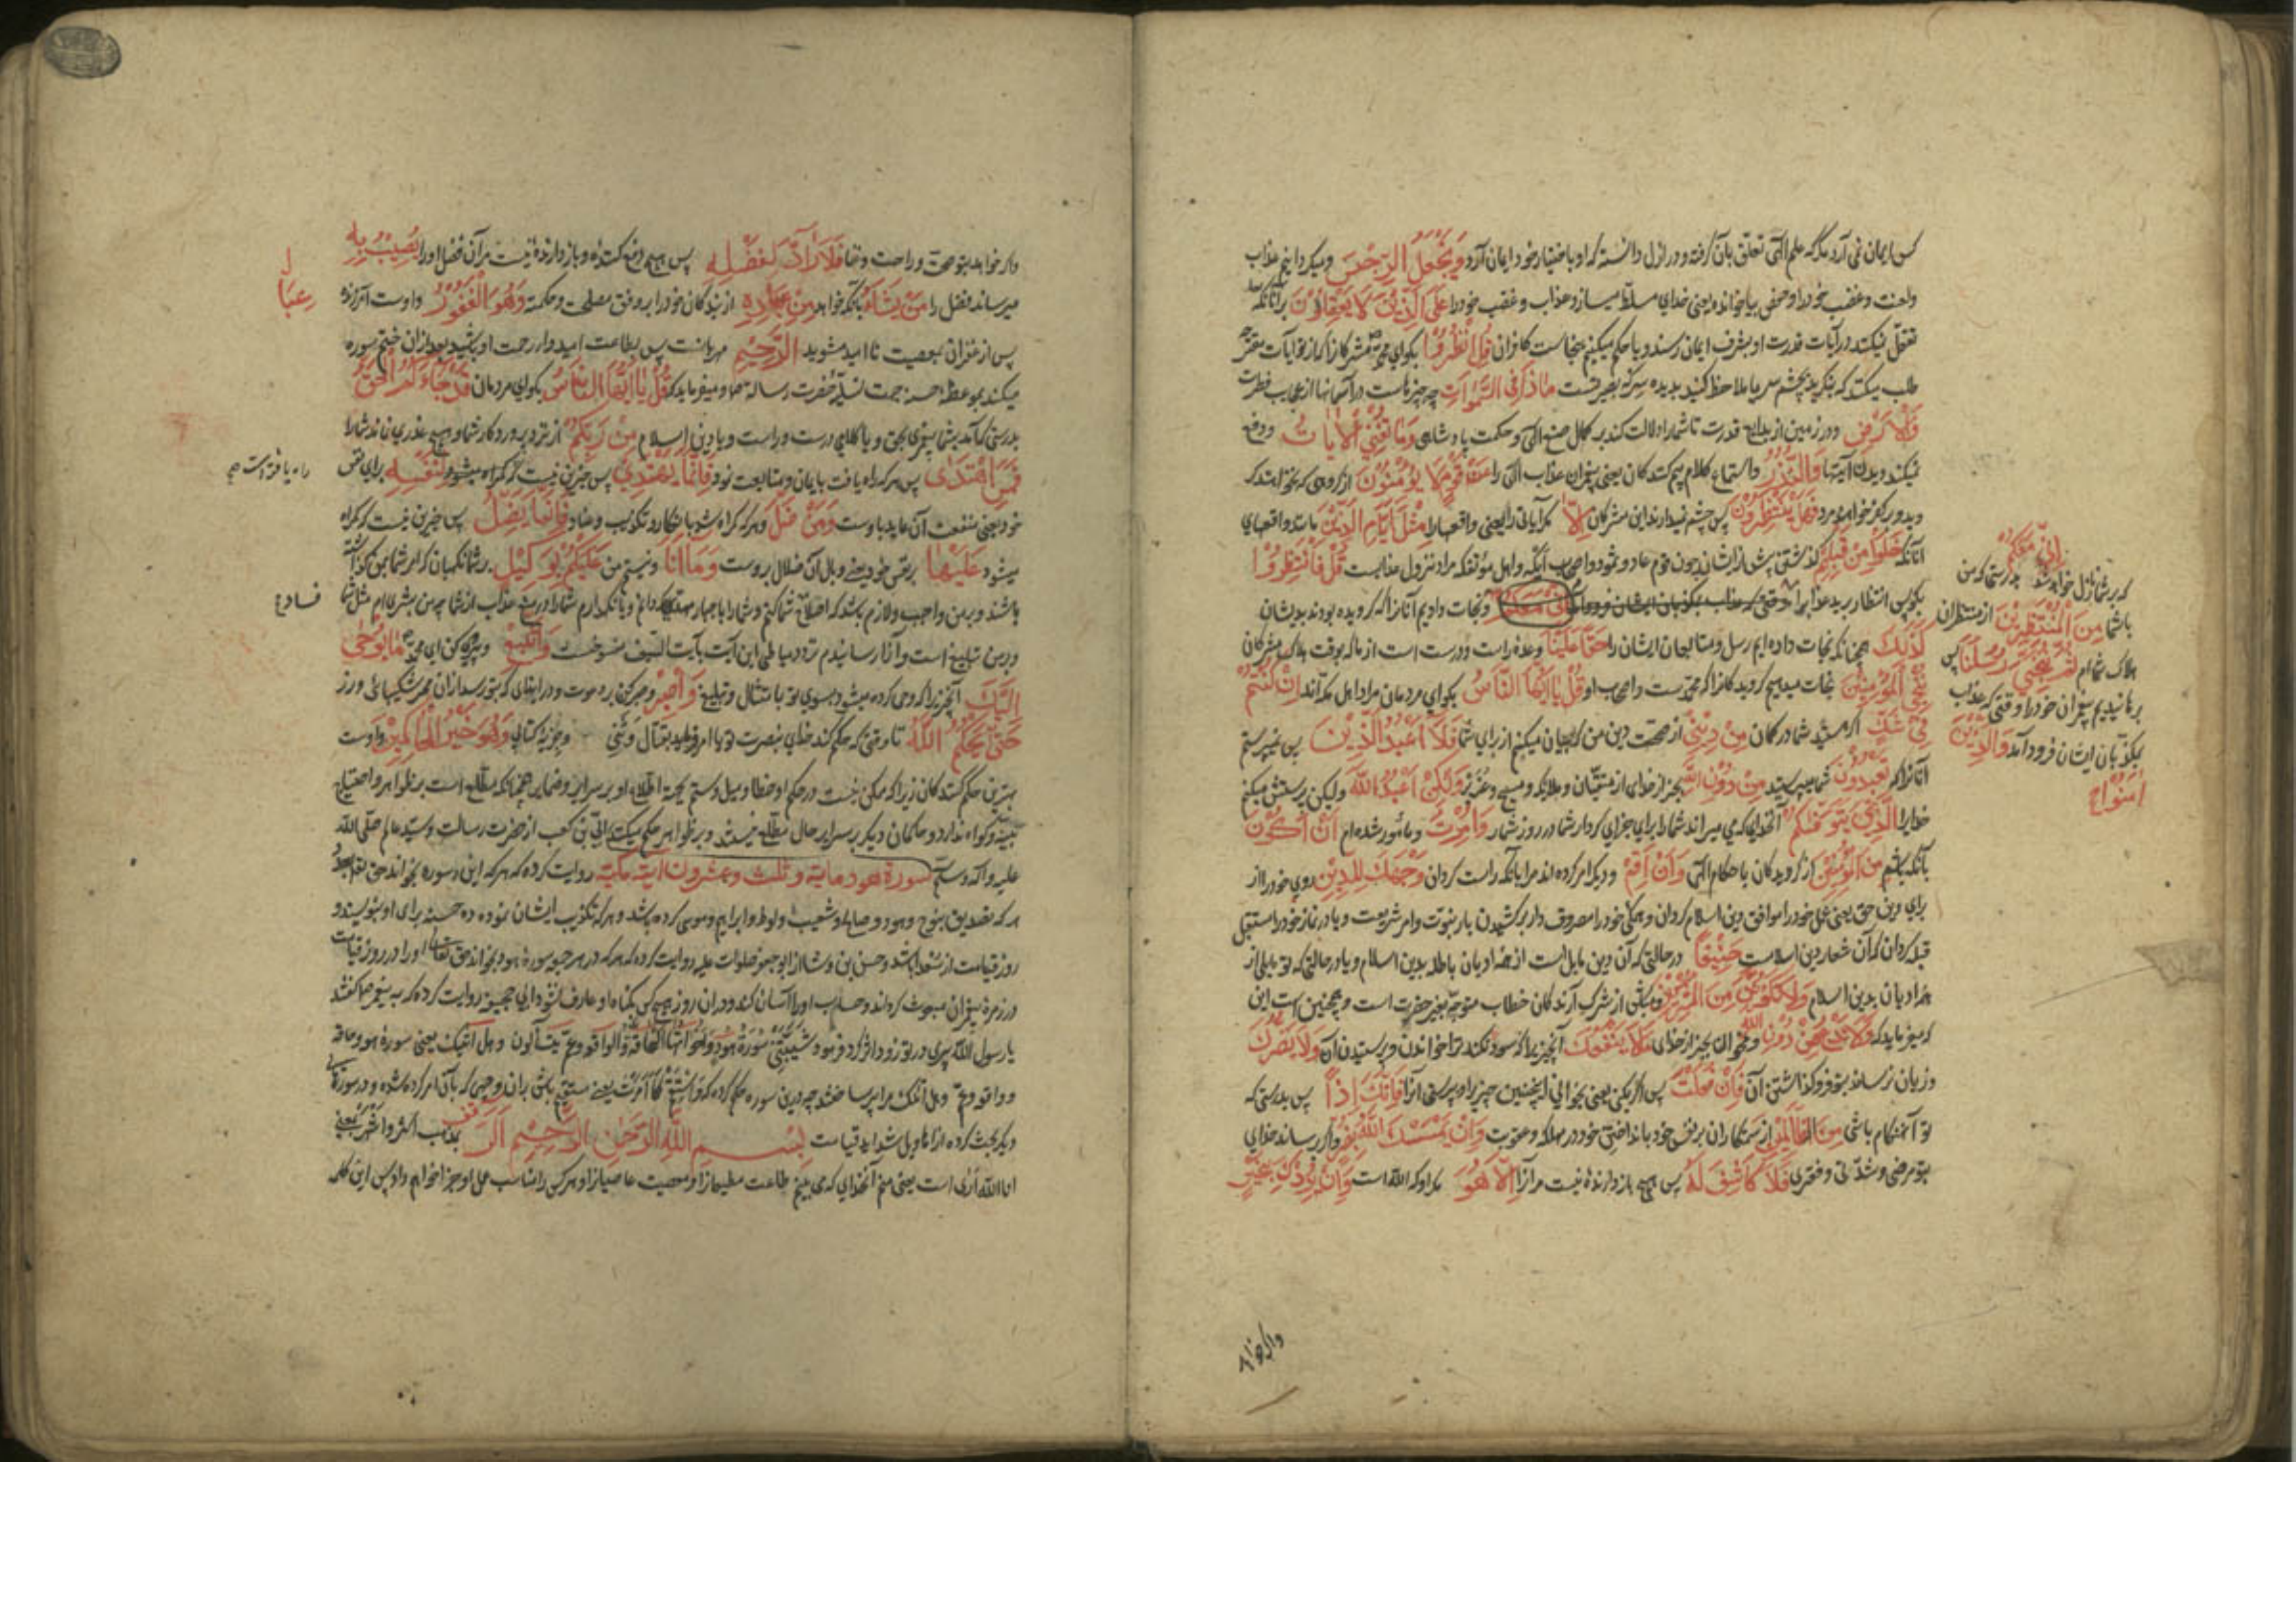 کس ایمان نمی آرد مگر که علم الهی تعلق بآن گرفته و در ازل دانسته که او باختیار خود ایمان آرد وَيَجْعَلُ الرِّجْسَ و میگرداینم عذاب
و لعنت و غضب خود را و حفص بیا خوانده یعنی خدای مسلط میسازد عذاب و غضب خود را عَلَى الَّذِيْنَ لَا يَعْقِلُوْنَ بر آنانکه
تعقل نمیکنند در آیات قدرت او بشرف ایمان رسند و یا حکم میکنیم بنجاست کافران قُلِ انْظُرُوْا بگو ای محمد مشرکانرا که از تو آیات
طلب میکنند که بنگرید بچشم سر یا ملاحظه کنید بدیده سر که بصیرتست مَاذَا فِی السَّمٰوَاتِ چه چیزهاست در آسمانها از عجایب فطرت
وَالْاَرْضِ و در زمین از بدایع قدرت تا شما را دلالت کند بر کمال صنع الهی و حکمت پادشاهی وَمَا تُغْنِي الْاٰيَاتُ و دفع
نمیکند دیدن آیتها وَالنُّذُرُ و استماع کلام بیم کنندگان یعنی پیغمبران عذاب الهی را عَنْ قَوْمٍ لَا يُؤْمِنُوْنَ از گروهی که نخواهند گر
وید و بر کفر خواهند مرد فَهَلْ يَنْتَظِرُوْنَ پس چشم نمیدارند این مشرکان اِلَّا مگر ایامی را یعنی واقعها را مِثْلَ اَيَّامِ الَّذِيْنَ مانند واقعهای
آنانکه خَلَوْا مِنْ قَبْلِهِمْ گذشتند پیش از ایشان چون قوم عاد و ثمود و اصحاب ایکه و اهل مؤتفکه مراد نزول عذابست قُلْ فَانْتَظِرُوْا
بگو پس انتظار برید عذاب را و نجات دادیم آنانرا که گرویده بودند بدیشان
كَذٰلِكَ همچنانکه نجات داده ایم رسل و متابعان ایشان را حَقًّا عَلَيْنَا وعده راست و درست است از ما که بوقت هلاک مشرکان
نُنْجِ الْمُؤْمِنِيْنَ نجات میدهیم گرویدگانرا که محمدست و اصحاب او قُلْ يَا اَيُّهَا النَّاسُ بگو ای مردمان مراد اهل مکه اند اِنْ كُنْتُمْ
فِیْ شَكٍّ اگر هستید شما در گمان مِنْ دِيْنِیْ از صحت دین من که بیان میکنم از برای شما فَلَا اَعْبُدُ الَّذِيْنَ پس نمیپرستم
آنانرا که تَعْبُدُوْنَ شما میپرستید مِنْ دُوْنِ اللّٰهِ بجز از خدای از بتان و ملایکه و مسیح و عزیر وَلٰكِنْ اَعْبُدُ اللّٰهَ ولیکن پرستش میکنم
خدایرا الَّذِیْ يَتَوَفّٰىكُمْ آنخدایی که می میراند شما را برای جزای کردار شما در روز شمار وَاُمِرْتُ و مأمور شده ام اَنْ اَكُوْنَ
بآنکه باشم مِنَ الْمُؤْمِنِيْنَ از گرویدگان باحکام الهی وَاَنْ اَقِمْ و دیگر امر کرده اند مرا بآنکه راست گردان وَجْهَكَ لِلدِّيْنِ روی خود را از
برای دین حق یعنی عمل خود را موافق دین اسلام گردان و همگی خود را مصروف دار بر کشیدن بار نبوت و امر شریعت و یا در نماز خود را مستقبل
قبله گردان که آن شعار دین اسلامست حَنِيْفًا در حالتی که آن دین مایل است از همه ادیان باطله بدین اسلام و یا در حالتی که تو مایلی از
همه ادیان بدین اسلام وَلَا تَكُوْنَنَّ مِنَ الْمُشْرِكِيْنَ و مباش از شرک آرندگان خطاب متوجه بغیر حضرت است و همچنین است این
که میفرماید که وَلَا تَدْعُ مِنْ دُوْنِ اللّٰهِ و مخوان بجز از خدای مَا لَا يَنْفَعُكَ آنچیزیرا که سود نکند ترا خواندن و پرستیدن آن وَلَا يَضُرُّكَ
و زیان نرساند بتو فرو گذاشتن آن فَاِنْ فَعَلْتَ پس اگر بکنی یعنی بخوانی اینچنین چیزیرا و پرستی آنرا فَاِنَّكَ اِذًا پس بدرستی که
تو آنهنگام باشی مِنَ الظَّالِمِيْنَ از ستمکاران بر نفس خود بانداختن خود در مهلکه و عقوبت وَاِنْ يَمْسَسْكَ اللّٰهُ بِضُرٍّ و اگر رساند خدای
بتو مرضی و شدتی و فقری فَلَا كَاشِفَ لَهٗ پس هیچ بازدارنده نیست مر آنرا اِلَّا هُوَ مگر او که الله است وَاِنْ يُرِدْكَ بِخَيْرٍ
اِنِّیْ مَعَكُمْ
که بر شما نازل خواهد شد بدرستی که من
با شما مِنَ الْمُنْتَظِرِيْنَ از منتظران
هلاک شما ام ثُمَّ نُنَجِّیْ رُسُلَنَا پس
برهانیدیم پیغمبران خود را وقتی که عذاب
بمکذبان ایشان فرود آمد وَالَّذِيْنَ
اٰمَنُوْا
و اگر خواهد
و اگر خواهد بتو صحت و راحت و غنا فَلَا رَادَّ لِفَضْلِهٖ پس هیچ دفع کننده و بازدارنده نیست مر آن فضل او را يُصِيْبُ بِهٖ
میرساند فضل را مَنْ يَشَاءُ بآنکه خواهد مِنْ عِبَادِهٖ از بندگان خود را بر وفق مصلحت و حکمت وَهُوَ الْغَفُوْرُ و اوست آمرزنده
پس از غفران بمعصیت نا امید مشوید الرَّحِيْمُ مهربانست پس بطاعت امیدوار رحمت او باشید بعد از آن ختم سوره
میکند بموعظه حسنه جهت تسلیه حضرت رسالت و میفرماید که قُلْ يَا اَيُّهَا النَّاسُ بگو ای مردمان قَدْ جَاءَكُمُ الْحَقُّ
بدرستی که آمد بشما پیغمبری بحق و یا کلامی درست و راست و یا دین اسلام مِنْ رَبِّكُمْ از نزد پروردگار شما و هیچ عذری نماند شما را
فَمَنِ اهْتَدٰى پس هر که راه یافت بایمان و متابعت نمود فَاِنَّمَا يَهْتَدِیْ پس جز این نیست که لِنَفْسِهٖ برای نفس
خود یعنی منفعت آن عاید باوست وَمَنْ ضَلَّ و هر که گمراه شد بانکار و تکذیب و عناد فَاِنَّمَا يَضِلُّ پس جز این نیست که گمراه
میشود عَلَيْهَا بر نفس خود یعنی وبال آن ضلال بروست وَمَا اَنَا و نیستم من عَلَيْكُمْ بِوَكِيْلٍ بر شما نگهبان که امر شما بمن گذاشته
باشند و بر من واجب و لازم باشد که اصلاح شما کنم و شما را باجبار
و بر من تبلیغ است و آنرا رسانیدم نزد دمیاطی این آیت بآیت السیف منسوخست وَاتَّبِعْ و پیروی کن ای محمد مَا يُوْحٰى
اِلَيْكَ آنچیزیرا که وحی کرده میشود بسوی تو بامتثال و تبلیغ وَاصْبِرْ و صبر کن بر دعوت و در ایذای که بتو رسد از آن شکیبائی ورز
حَتّٰى يَحْكُمَ اللّٰهُ تا وقتی که حکم کند خدای بنصرت تو یا امر فرماید بقتال وثنی و جزیه کتابی وَهُوَ خَيْرُ الْحَاكِمِيْنَ و اوست
بهترین حکم کنندگان زیرا که ممکن نیست در حکم او خطا و میل و ستم بجهة اطلاع او بر سرایر و ضمایر همچنانکه مطلع است بر ظواهر و احتیاج
ببینه و گواه ندارد و حاکمان دیگر بر سرایر حال مطلع نیستند و بر ظواهر حکم میکنند ابی بن کعب از حضرت رسالت و سید عالم صلی الله
علیه و آله وسلم سورة هود مایة و ثلث و عشرون ایة مکیة روایت کرده که هر که این سوره بخواند حق تعالی
هر که تصدیق نوح و هود و صالح و شعیب و لوط و ابراهیم و موسی کرده باشد و هر که تکذیب ایشان نموده ده حسنه برای او بنویسند و
روز قیامت از سعدا باشد و حسن بن وشا از ابو جعفر صلوات علیه روایت کرده که هر که در هر جمعه سوره هود بخواند حق تعالی او را در روز قیامت
در زمره پیغمبران مبعوث گرداند و حساب او را آسان کند و در آن روز هیچ کس بگناه او عارف نشود ابی جحیفه روایت کرده که به پیغمبر گفتند
یا رسول الله پیری در تو زود اثر کرد فرمود شَيَّبَتْنِیْ سُوْرَةُ هُوْدٍ وَاَخَوَاتُهَا الْحَاقَّةُ وَالواقعه و عم یتسألون و هل اتیک یعنی سورة هود و حاقه
و واقعه و عم و هل اتیک مرا پیر ساختند چه درین سوره حکم کرده که فَاسْتَقِمْ كَمَا اُمِرْتَ یعنی مستقیم باش بر آن وجهی که بآن امر کرده شده و در سورهای
دیگر بحث کرده از اهاویل شداید قیامت بِسْمِ اللّٰهِ الرَّحْمٰنِ الرَّحِيْمِ الٓرٰ بمذهب اکثر و اشهر بمعنی
انا الله اری است یعنی منم آنخدایی که می بینم طاعت مطیعانرا و معصیت عاصیانرا و هر کس را مناسب عمل او جزا خواهم داد پس این کلمه
عِبَا
راه یافته است
فساد